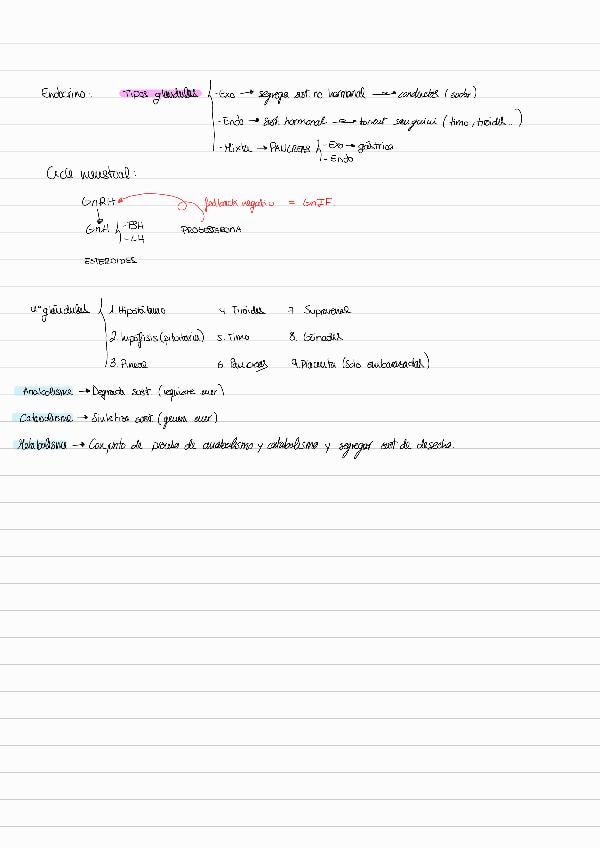 Endocrino: Tipos glándulas - Exo → segrega sust. no hormonal → conductos (sudor)
- Endo → sust. hormonal → torrent sanguini (timo, tiroides...)
- Mixta → PANCREAS - Exo → gástrica
- Endo
Ciclo menstrual:
GnRH feedback negativo = GnIF
GnH - FSH PROGESTERONA
- LH
ESTEROIDES
glándulas 1. Hipotálamo 4. Tiroides 7. Suprarrenal
2. hipófisis (pituitaria) 5. Timo 8. Gónadas
3. Pineal 6. Pancreas 9. Placenta (Solo embarazadas)
Anabolismo → Degrada sust (requiere ener)
Catabolismo → Sintetiza sust (genera ener)
Metabolismo → Conjunto de de anabolismo y catabolismo y segregar sust de desecho.